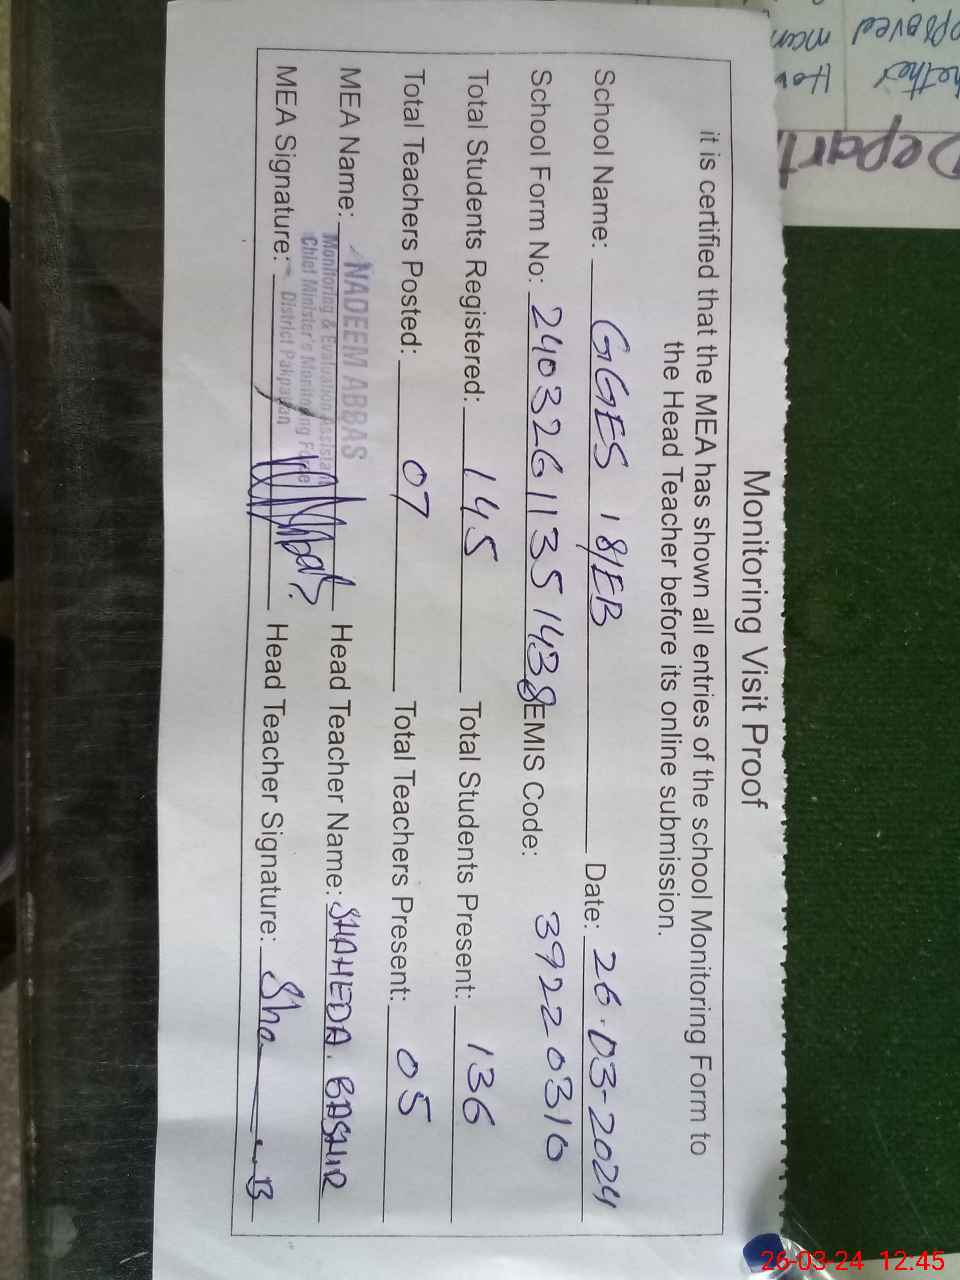 Monitoring Visit Proof
it is certified that the MEA has shown all entries of the school Monitoring Form to
the Head Teacher before its online submission.
School Name: GGES 18/EB Date: 26.03-2024
School Form No: 24032611351438 SEMIS Code: 39220310
Total Students Registered: 145 Total Students Present: 136
Total Teachers Posted: 07 Total Teachers Present: 05
MEA Name: NADEEM ABBAS Head Teacher Name: SHAHEDA. BASHIR
Monitoring & Evaluation Assistant
Chief Minister's Monitoring Force
District Pakpattan
MEA Signature: Head Teacher Signature: Sha B
Depart
26-03-24 12:45